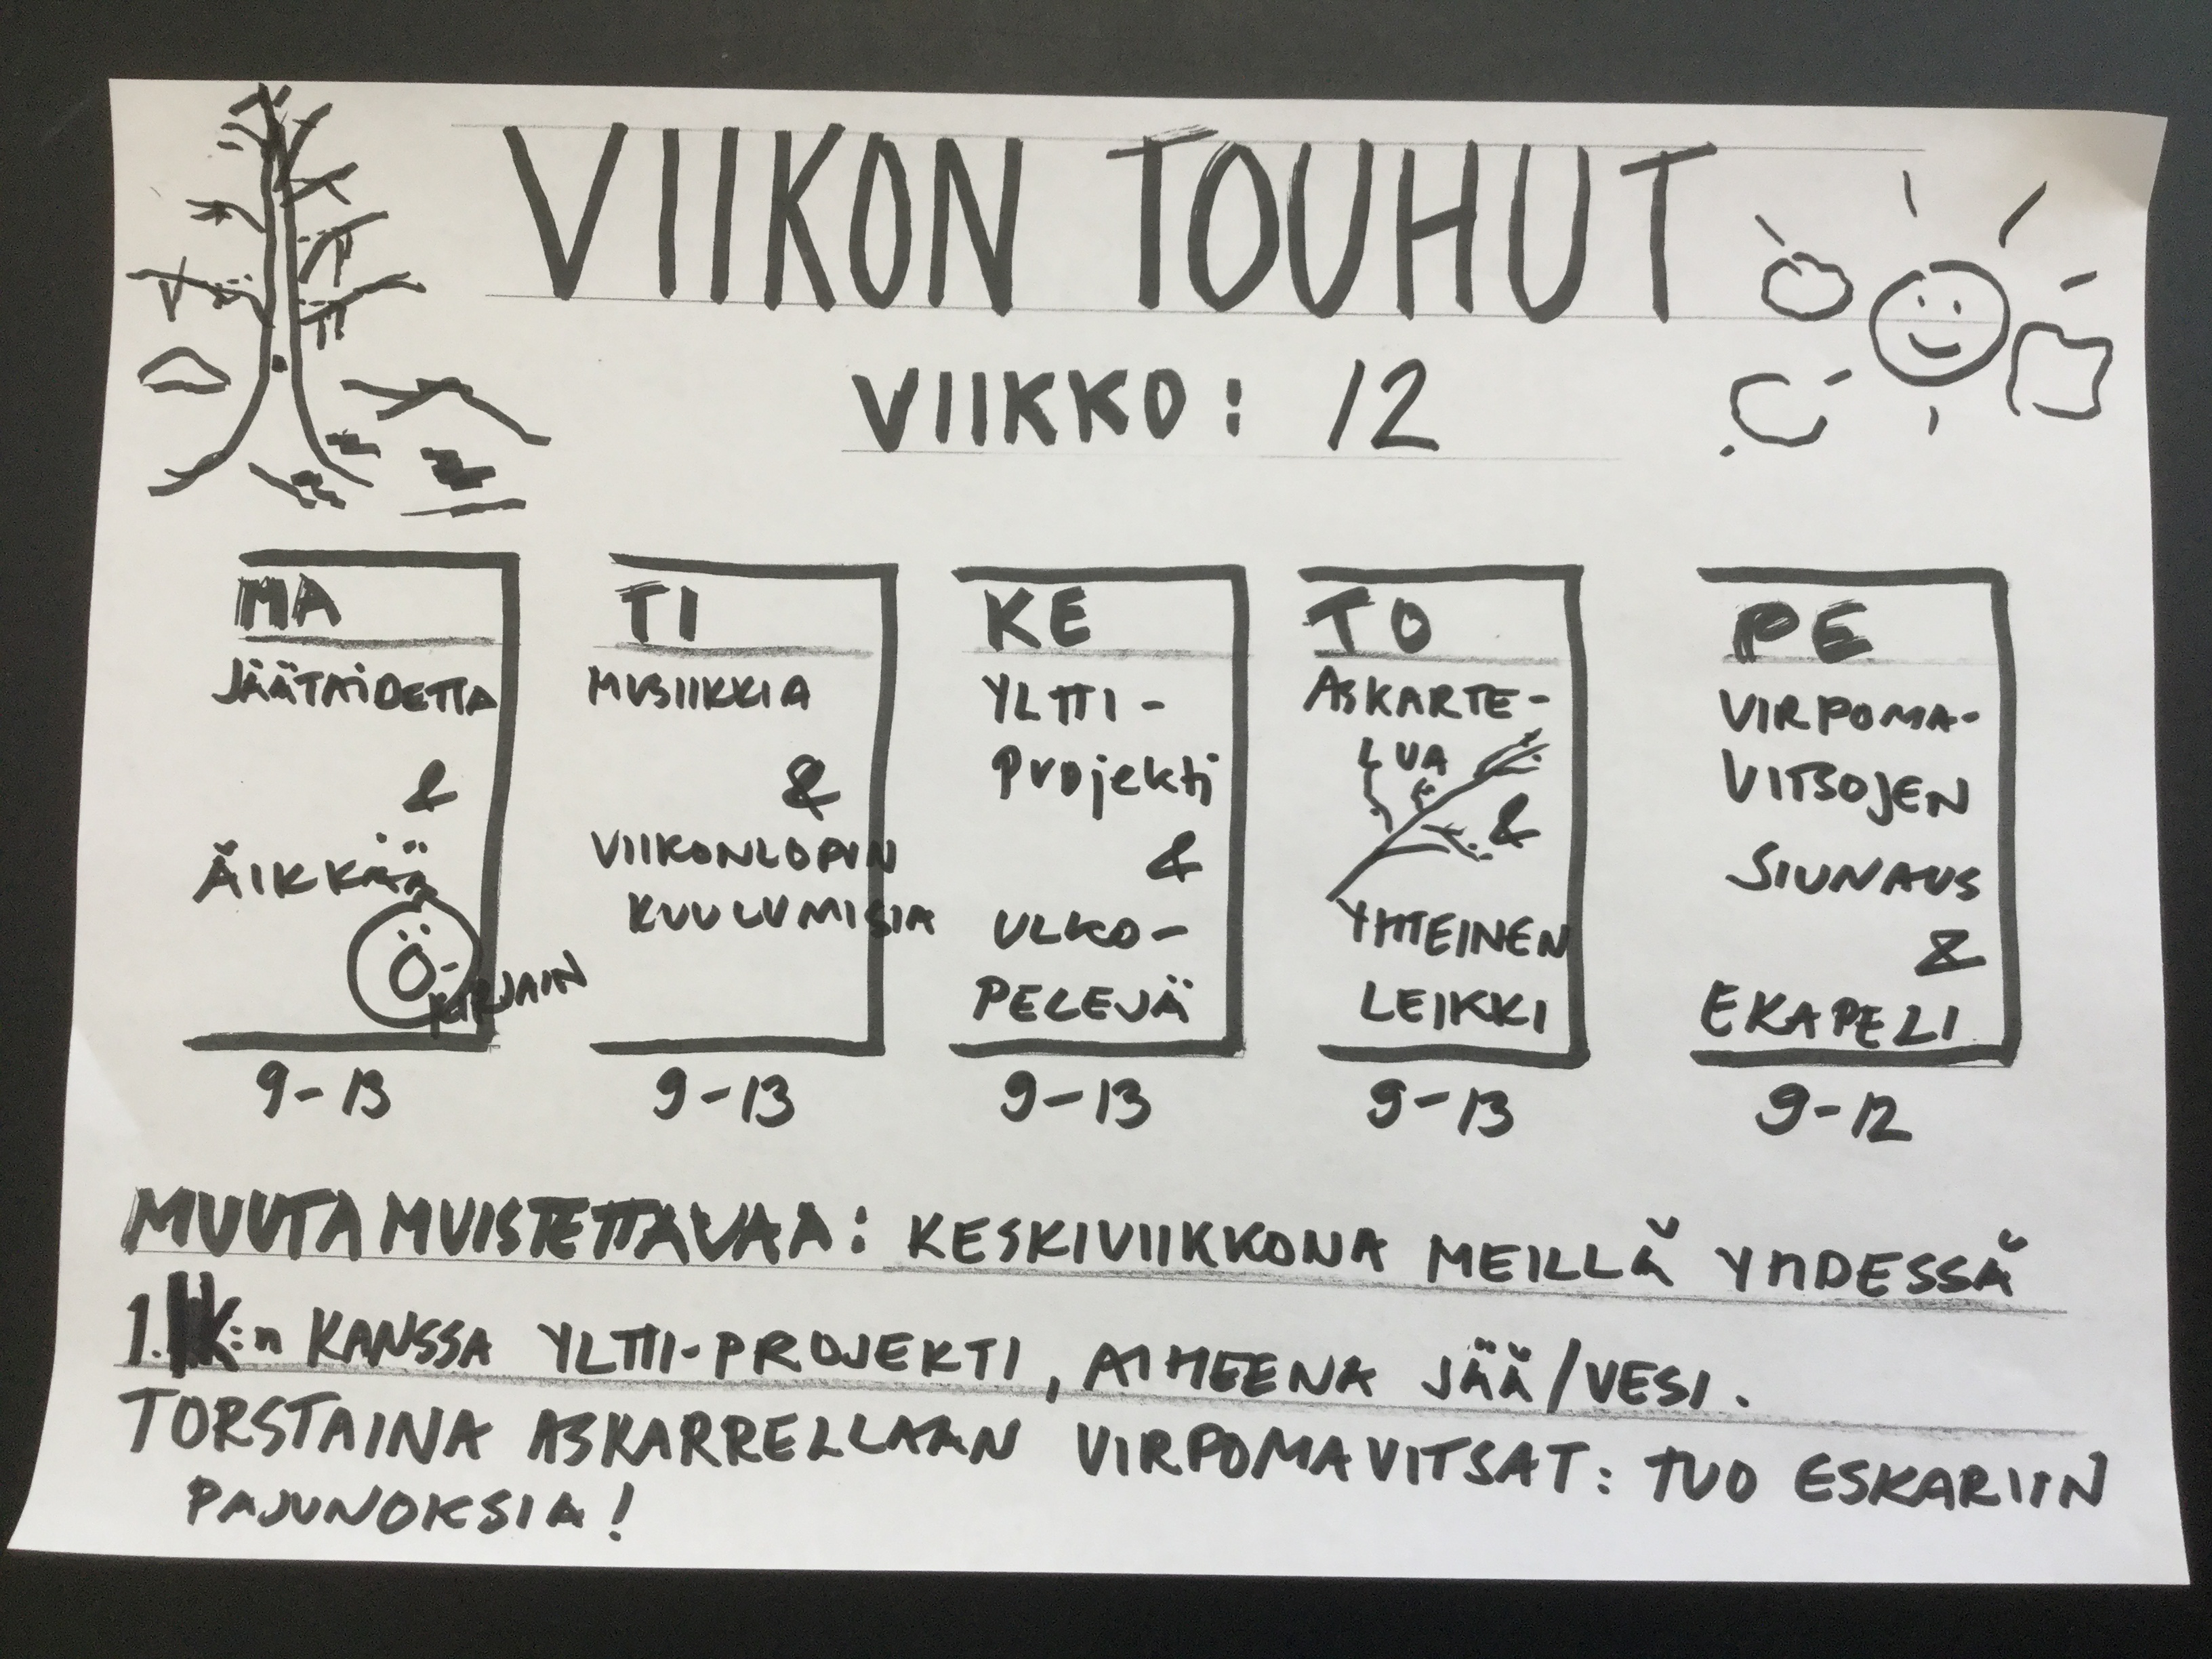 VIIKON TOUHUT
VIIKKO: 12
MA
JÄÄTAIDETTA
&
ÄIKKÄÄ
Ö-
KIRJAIN
9-13
TI
MUSIIKKIA
&
VIIKONLOPUN
KUULUMISIA
9-13
KE
YLTTI-
projekti
&
ULKO-
PELEJÄ
9-13
TO
ASKARTE-
LUA
&
YHTEINEN
LEIKKI
9-13
PE
VIRPOMA-
VITSOJEN
SIUNAUS
&
EKAPELI
9-12
MUUTA MUISTETTAVAA: KESKIVIIKKONA MEILLÄ YHDESSÄ
1.lK:n KANSSA YLTTI-PROJEKTI, AIHEENA JÄÄ/VESI.
TORSTAINA ASKARRELLAAN VIRPOMAVITSAT: TUO ESKARIIN
PAJUNOKSIA!